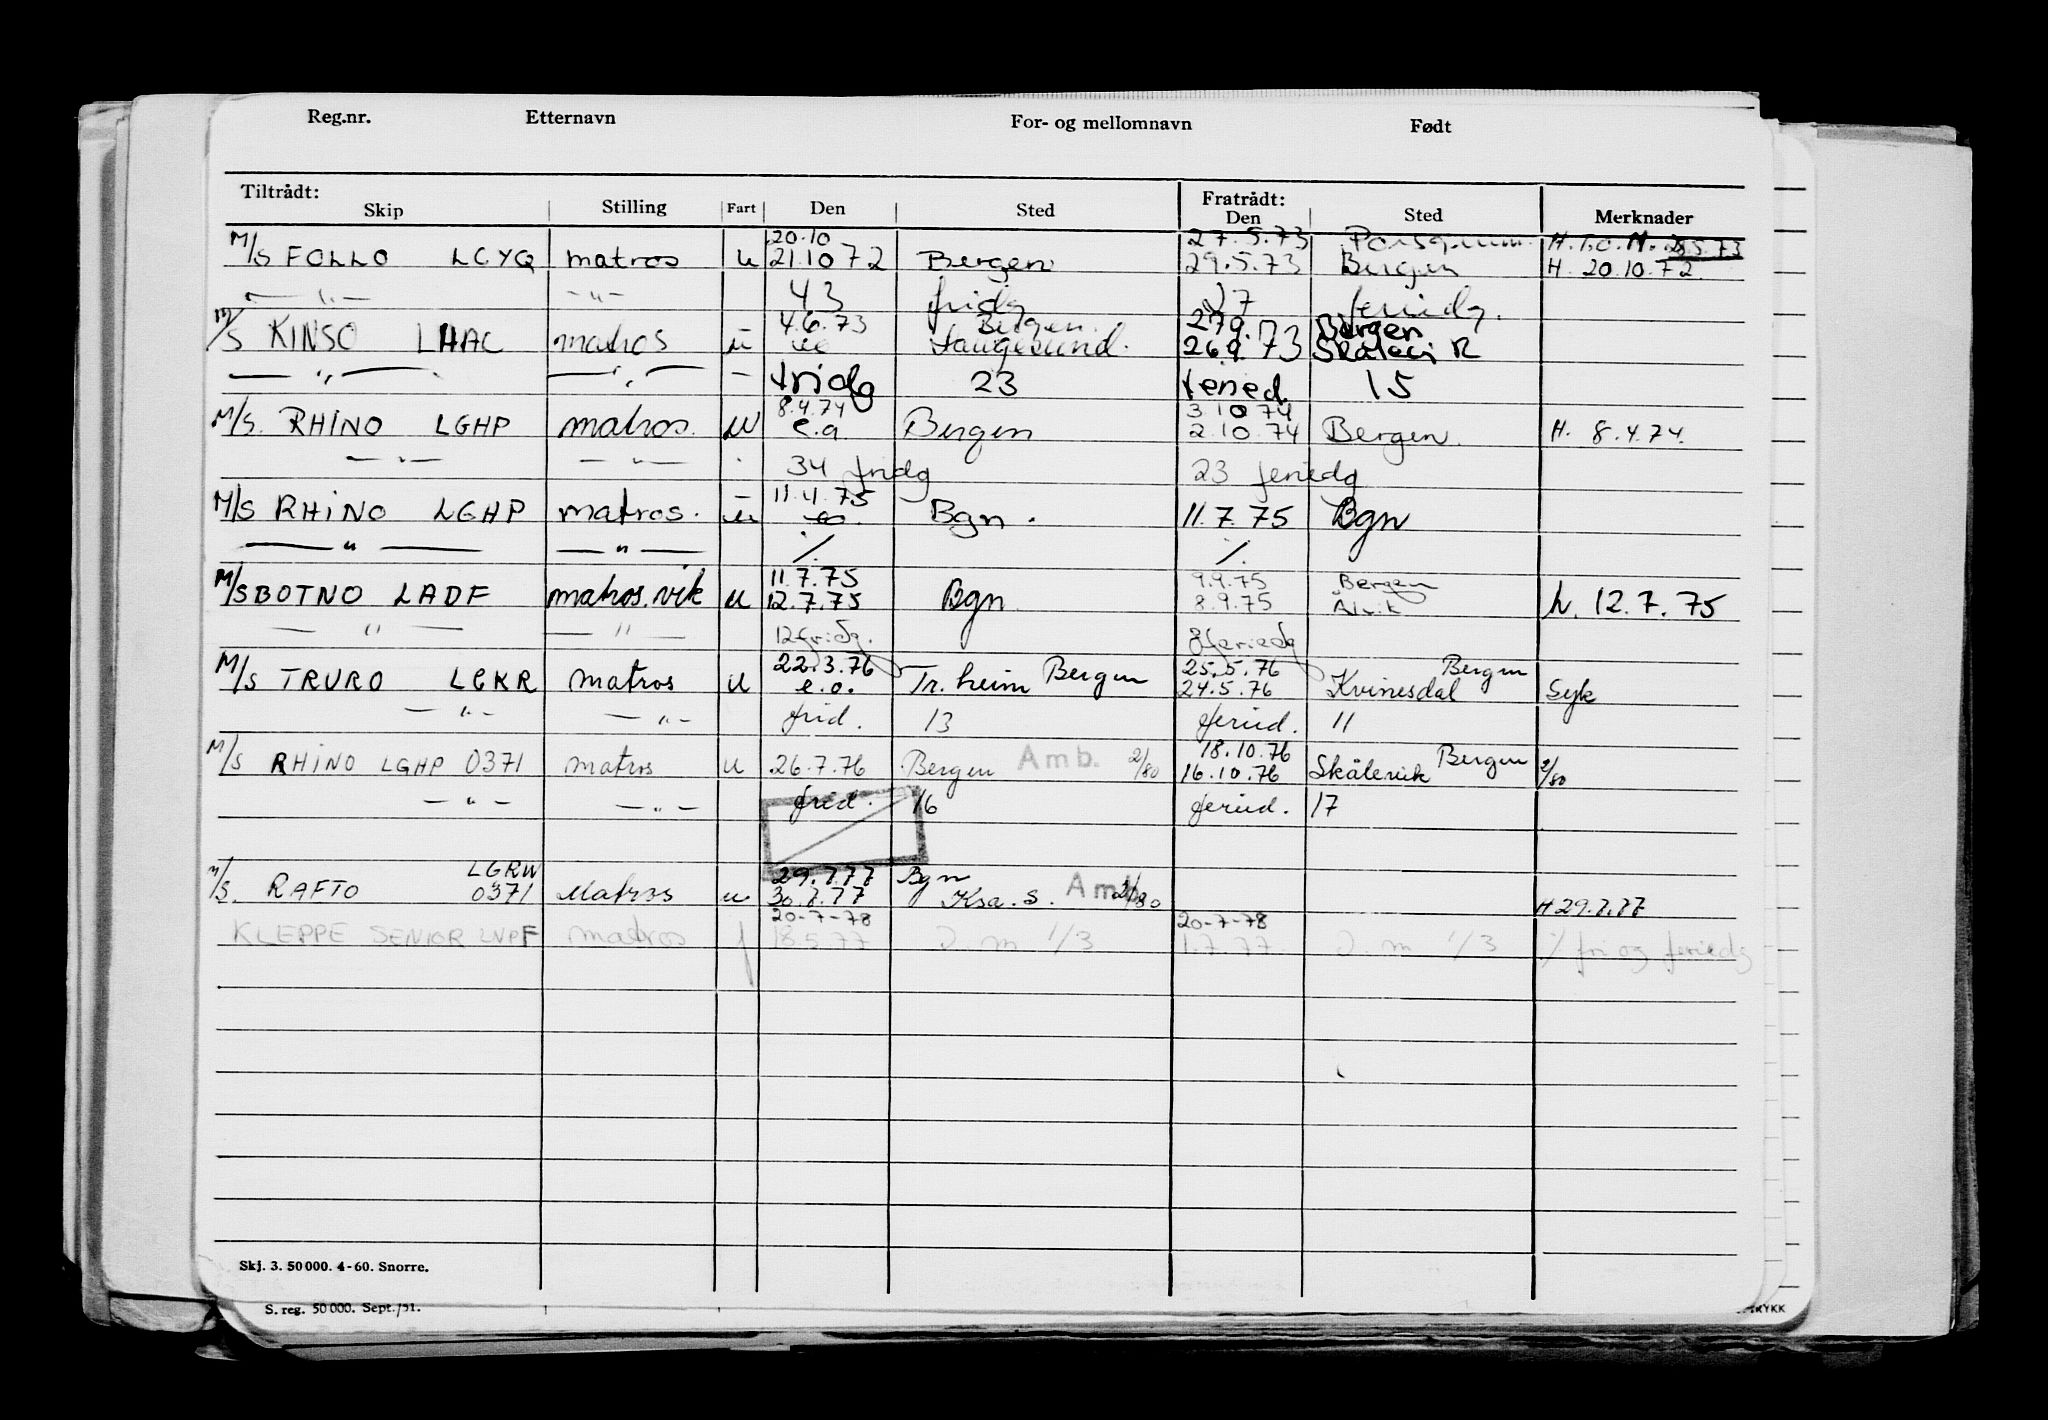 Reg.nr. Etternavn For- og mellomnavn Født
Tiltrådt: Fratrådt:
Skip Stilling Fart Den Sted Den Sted Merknader
20.10 27.5.73 H.T.O.N. 28.5.73
M/S FOLLO LCYQ matros u 21.10 72 Bergen 29.5.73 Bergen H. 20.10.72.
— " — — " — 43 fridg 17 feriedg.
4.6.73 Bergen 27.9.73 Bergen
M/S KINSO LHAC matros u eo Langesund. 26.9.73 Skålevi k
— " — — " — — fridg 23 feried. 15
8.4.74 3.10.74
M/S. RHINO LGHP matros. u e.o. Bergen 2.10.74 Bergen. H. 8.4.74.
— " — — " — 34 fridg 23 feriedg
11.4.75
M/S RHINO LGHP matros. u eo. Bgn. 11.7.75 Bgn
— " — — " — % %
11.7.75 9.9.75 Bergen
M/S BOTNO LADF matros.vik u 12.7.75 Bgn 8.9.75 Ålvik h. 12.7.75
— " — — " — 12 fridg. 8 feriedg
22.3.76 Bergen 25.5.76 Bergen
M/S TRURO LGKR matros u e.o. Tr.heim 24.5.76 Kvinesdal Syk
— " — — " — frid. 13 feried. 11
18.10.76 Bergen
M/S RHINO LGHP 0371 matros u 26.7.76 Bergen Amb. 2/80 16.10.76 Skålevik 2/80
— " — — " — frid. 16 feried. 17
LGRW 29.7.77 Bgn
M/S. RAFTO 0371 Matros u 30.7.77 Ksa.S. Amb. 2/80 H 29.7.77
20-7-78 20-7-78
KLEPPE SENIOR LNPF matros f 18.5.77 D.m 1/3 1.7.77 D.m 1/3 % fri og feriedg
Skj. 3. 50 000. 4-60. Snorre.
S. reg. 50 000. Sept./51.